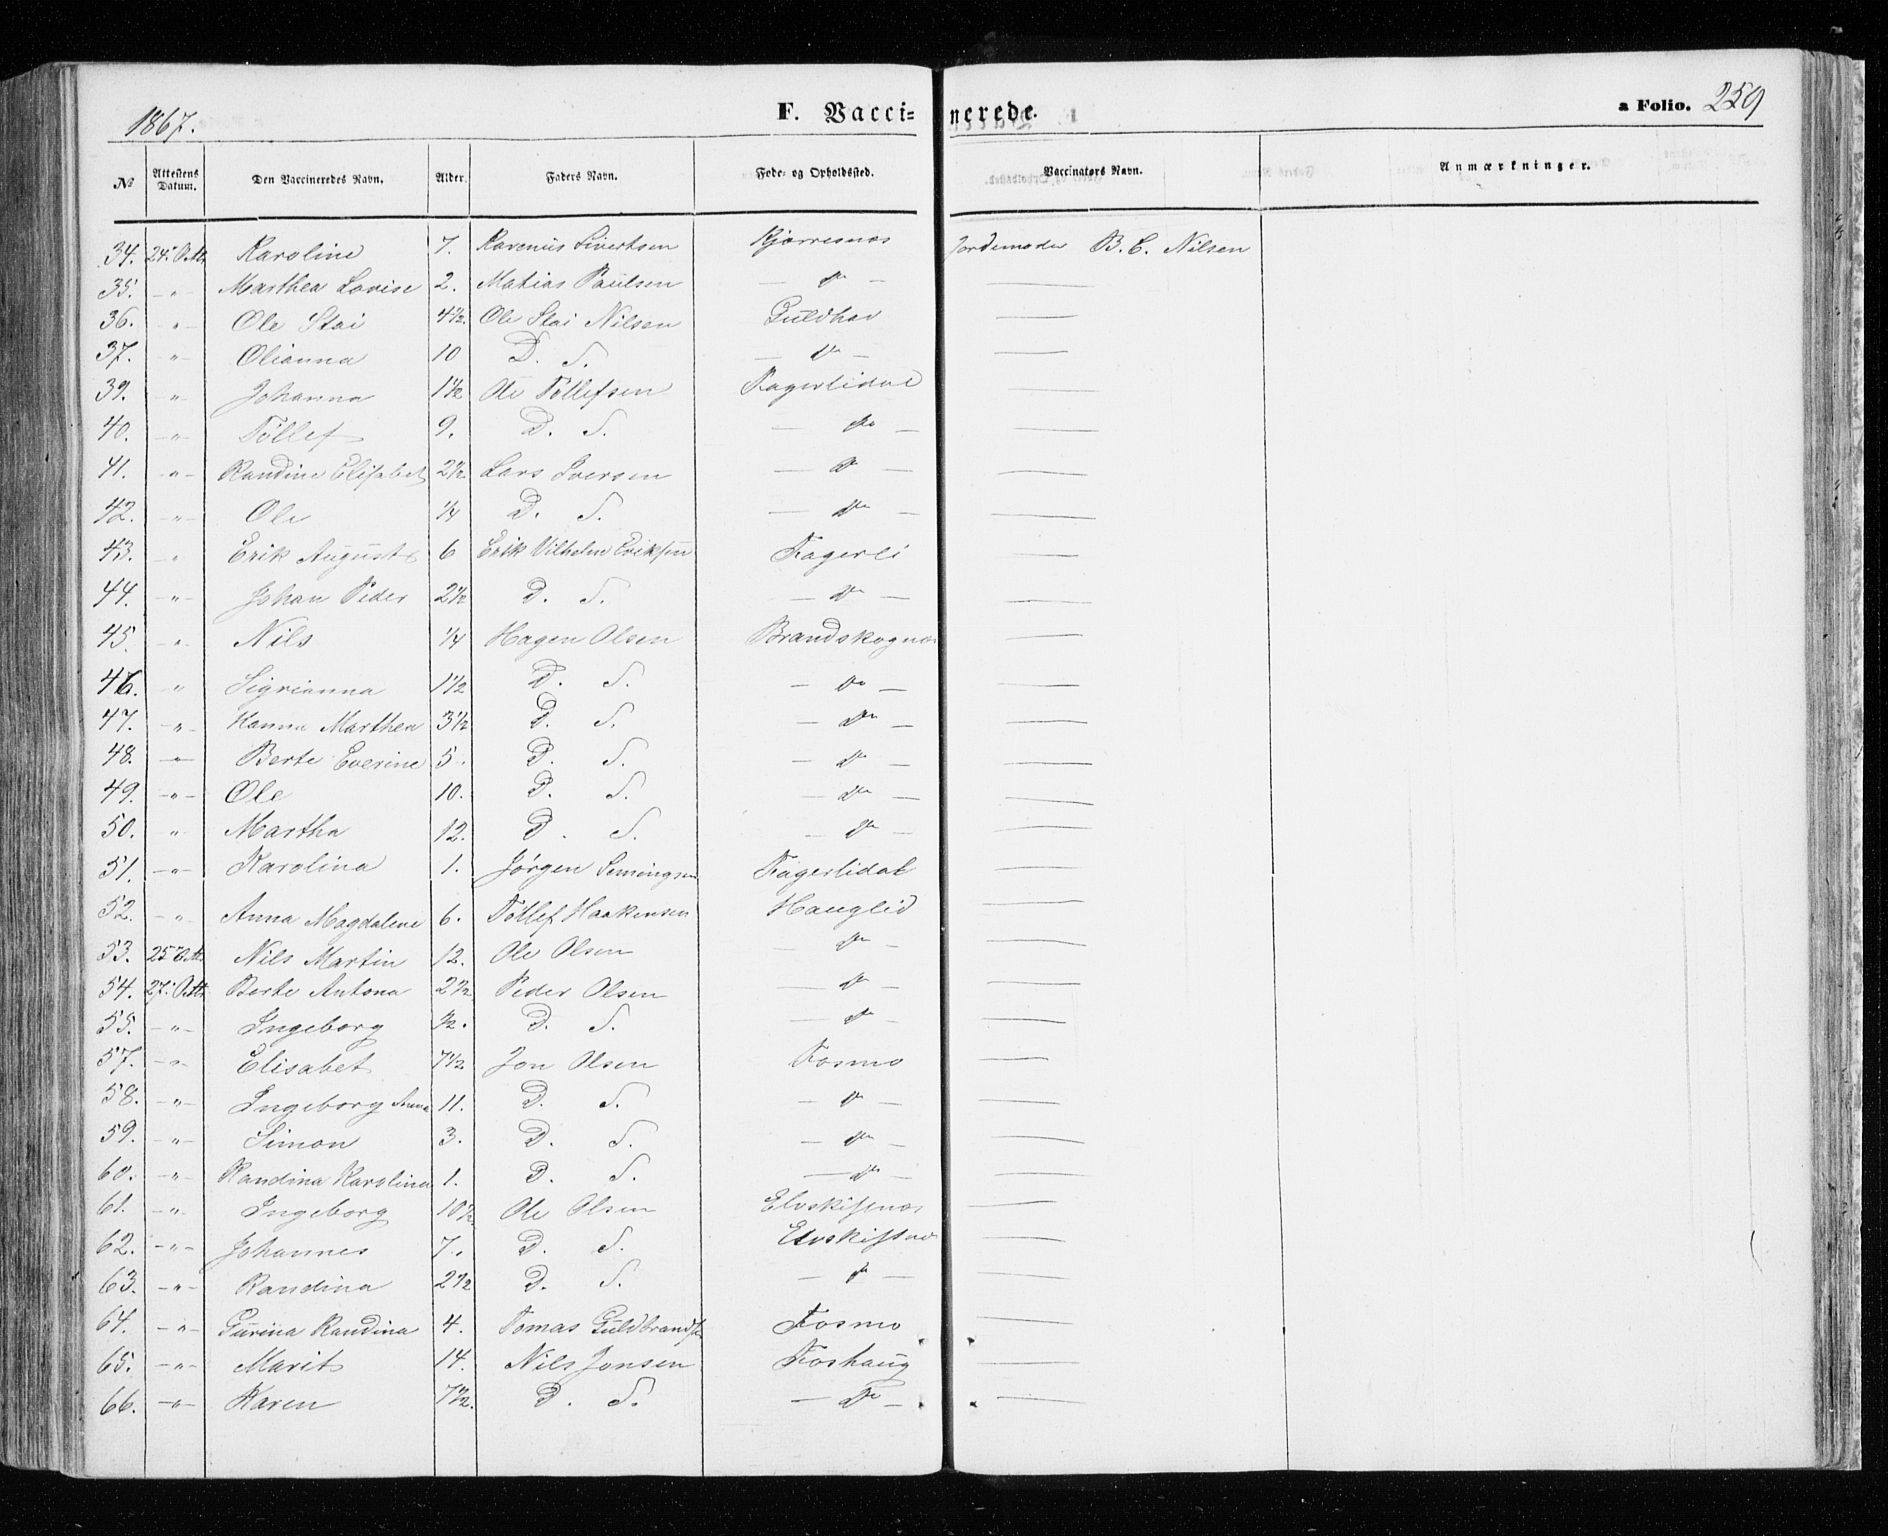 1867.
F. Vaccinerede.
a Folio. 259
№ | Attestens Datum. | Den Vaccineredes Navn. | Alder. | Faders Navn. | Føde- og Opholdssted. | Vaccinators Navn. | Anmærkninger.
34. 24. Octb Karoline 7. Karenius Sivertsen Kjørresnæs Jordemoder B. C. Nilsen
35. " Marthea Lovise 2. Matias Paulsen — do —
36. " Ole Stai 4½. Ole Stai Nilsen Guldhav
37. " Olianna 10 D. S. — do —
39. " Johanna 1½ Ole Tøllefsen Fagerlidal
40. " Tøllef 9. D. S. — do —
41. " Randine Elisabet 2½ Lars Iversen — do —
42. " Ole ¼ D. S. — do —
43. " Erik August 6 Erik Vilhelm Eriksen Fagerli
44. " Johan Peder 2½ D. S. — do —
45. " Nils ¼ Hagen Olsen Brandskognæs
46. " Sigrianna 1½ D. S. — do —
47. " Hanna Marthea 3½ D. S. — do —
48. " Berte Everine 5. D. S. — do —
49. " Ole 10. D. S. — do —
50. " Martha 12. D. S. — do —
51. " Karolina 1. Jørgen Semingsen Fagerlidal
52. " Anna Magdalene 6. Tøllef Haakensen Hauglid
53. 25 Octb. Nils Martin 12. Ole Olsen — do —
54. 27. Octb Berte Antona 2½ Peder Olsen — do —
55. " Ingeborg ½. D. S. — do —
57. " Elisabet 7½ Jon Olsen Fosmo
58. " Ingeborg Anna 11. D. S. — do —
59. " Simon 3. D. S. — do —
60. " Randina Karolina 1. D. S. — do —
61. " Ingeborg 10½ Ole Olsen Elvskiftnæs
62. " Johannes 7. D. S. Elvskiftnæs
63. " Randina 2½ D. S. — do —
64. " Gurina Randina 4. Tomas Guldbrands. Fosmo
65. " Marit 14. Nils Jonsen Foshaug
66. " Karen 7½. D. S. — do —